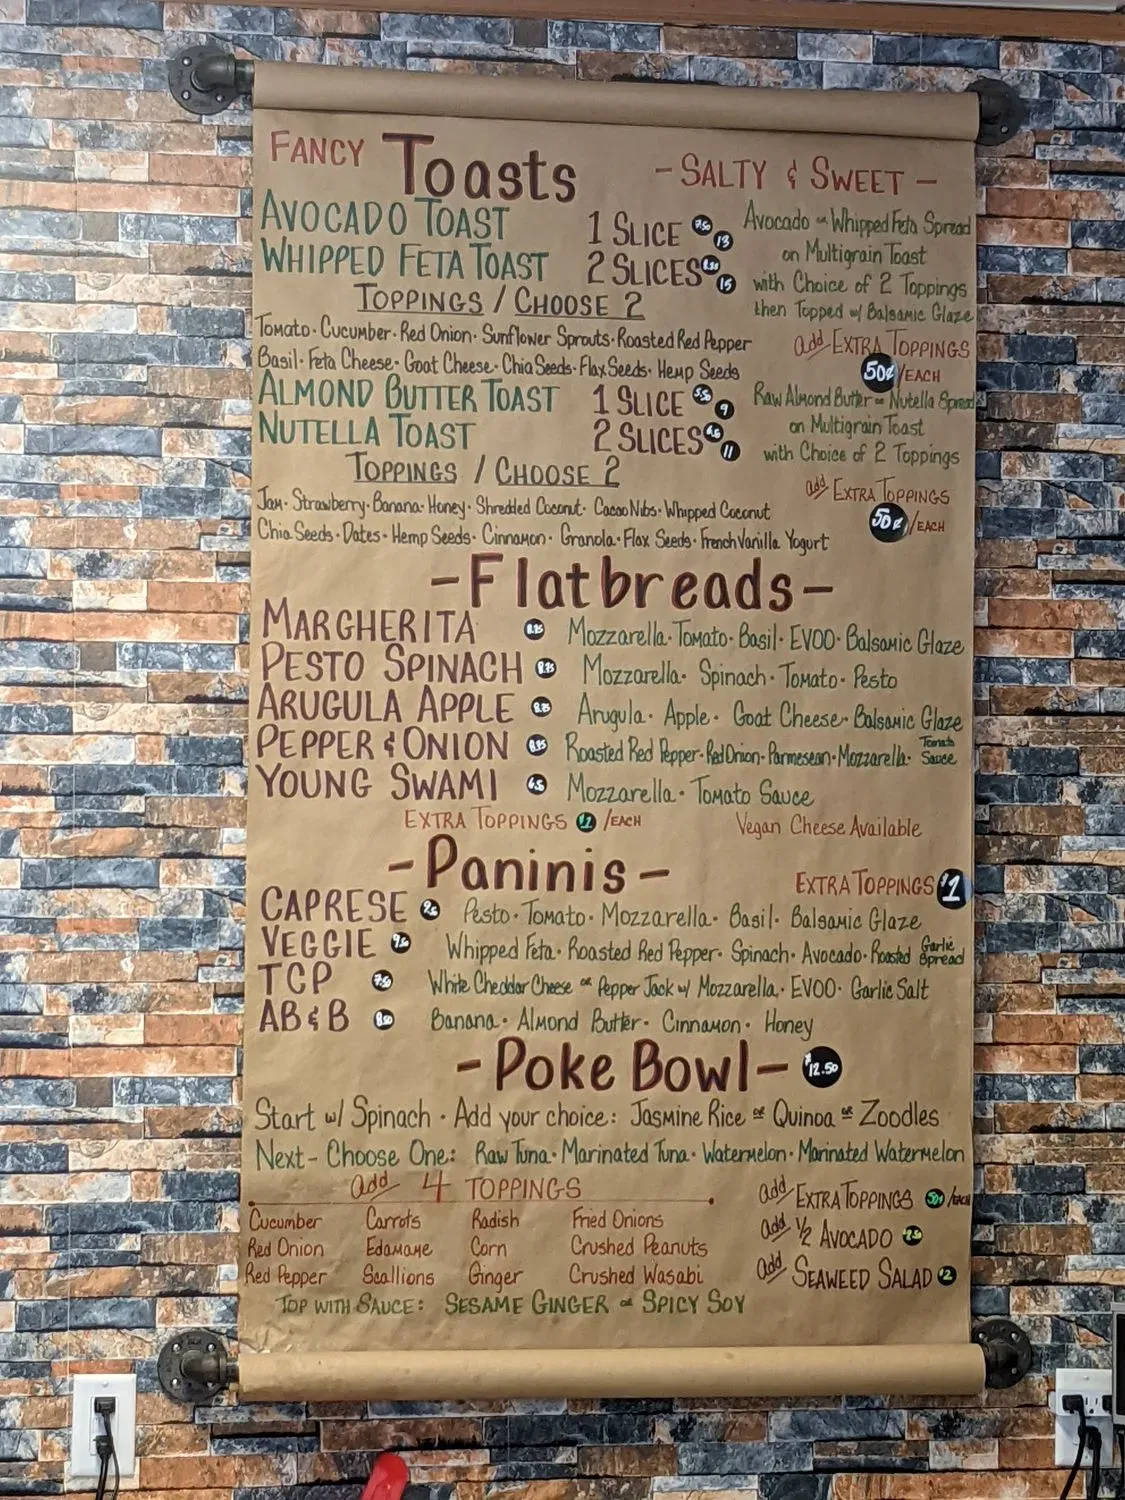 FANCY Toasts
- SALTY & SWEET -
AVOCADO TOAST 1 SLICE 7.50 13
WHIPPED FETA TOAST 2 SLICES 15
Avocado or Whipped Feta Spread
on Multigrain Toast
with Choice of 2 Toppings
then Topped w/ Balsamic Glaze
TOPPINGS / CHOOSE 2
Tomato · Cucumber · Red Onion · Sunflower Sprouts · Roasted Red Pepper
Basil · Feta Cheese · Goat Cheese · Chia Seeds · Flax Seeds · Hemp Seeds
add EXTRA TOPPINGS
50¢/EACH
ALMOND BUTTER TOAST 1 SLICE 5.50 9
NUTELLA TOAST 2 SLICES 11
Raw Almond Butter or Nutella Spread
on Multigrain Toast
with Choice of 2 Toppings
TOPPINGS / CHOOSE 2
Jam · Strawberry · Banana · Honey · Shredded Coconut · Cacao Nibs · Whipped Coconut
Chia Seeds · Dates · Hemp Seeds · Cinnamon · Granola · Flax Seeds · French Vanilla Yogurt
add EXTRA TOPPINGS
50¢/EACH
- Flatbreads -
MARGHERITA 8.75 Mozzarella · Tomato · Basil · EVOO · Balsamic Glaze
PESTO SPINACH 8.75 Mozzarella · Spinach · Tomato · Pesto
ARUGULA APPLE 8.75 Arugula · Apple · Goat Cheese · Balsamic Glaze
PEPPER & ONION 8.95 Roasted Red Pepper · Red Onion · Parmesean · Mozzarella · Tomato Sauce
YOUNG SWAMI 6.50 Mozzarella · Tomato Sauce
EXTRA TOPPINGS $1 /EACH Vegan Cheese Available
- Paninis -
EXTRA TOPPINGS $1
CAPRESE Pesto · Tomato · Mozzarella · Basil · Balsamic Glaze
VEGGIE 9.50 Whipped Feta · Roasted Red Pepper · Spinach · Avocado · Roasted Garlic Spread
TCP 7.50 White Cheddar Cheese or Pepper Jack w/ Mozzarella · EVOO · Garlic Salt
AB & B 8.50 Banana · Almond Butter · Cinnamon · Honey
- Poke Bowl - $12.50
Start w/ Spinach · Add your choice: Jasmine Rice or Quinoa or Zoodles
Next - Choose One: Raw Tuna · Marinated Tuna · Watermelon · Marinated Watermelon
add 4 TOPPINGS
Cucumber Carrots Radish Fried Onions
Red Onion Edamame Corn Crushed Peanuts
Red Pepper Scallions Ginger Crushed Wasabi
add EXTRA TOPPINGS 50¢/EACH
add 1/2 AVOCADO
add SEAWEED SALAD $2
TOP WITH SAUCE: SESAME GINGER or SPICY SOY